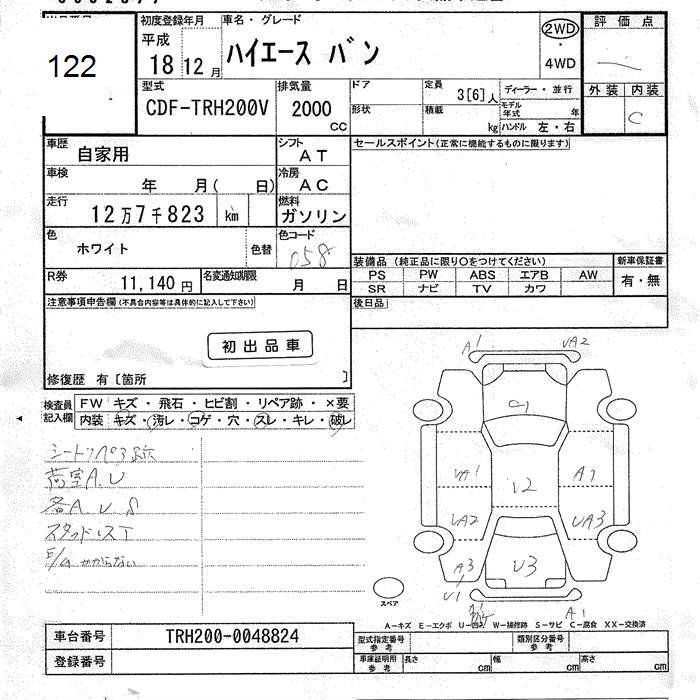 122
初度登録年月
平成
18 12 月
車名・グレード
ハイエース バン
2WD
・
4WD
評価点
外装 内装
C
型式
CDF-TRH200V
排気量
2000
CC
ドア
形状
定員
3[6]人
積載
kg
ディーラー・並行
モデル年式 年
ハンドル 左・右
車歴
自家用
シフト
AT
セールスポイント(正常に機能するものに限ります)
車検
年 月( 日)
冷房
AC
走行
12万7千823 km
燃料
ガソリン
色
ホワイト
色替
色コード
058
装備品(純正品に限り○をつけてください)
新車保証書
PS PW ABS エアB AW
有・無
SR ナビ TV カワ
R券
11,140 円
名変通知期限
月 日
後日品
注意事項申告欄(不具合内容等は具体的に記入して下さい)
初出品車
修復歴 有〔箇所 〕
検査員記入欄
FW キズ・飛石・ヒビ割・リペア跡・×要
内装 キズ・汚レ・コゲ・穴・スレ・キレ・破レ
荷室A.U
各A.U.S
スタッドレスT
E/gかからない
A1 UA2
G1
UA1 A1
UA2 12 UA3
A3 U3
U1
A1
スペア
A－キズ E－エクボ U－凹ミ W－補修跡 S－サビ C－腐食 XX－交換済
車台番号
TRH200-0048824
登録番号
型式指定番号
参考
類別区分番号
参考
車庫証明用
参考
長さ cm 幅 cm 高さ cm